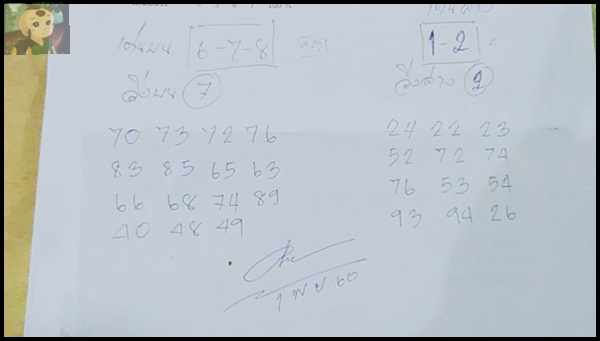 เด่นบน 6-7-8
วิ่งบน 7
70 73 72 76
83 85 65 63
66 68 74 89
40 48 49
1-2
วิ่งล่าง 2
24 22 23
52 72 74
76 53 54
93 94 26
1 พ.ย. 60